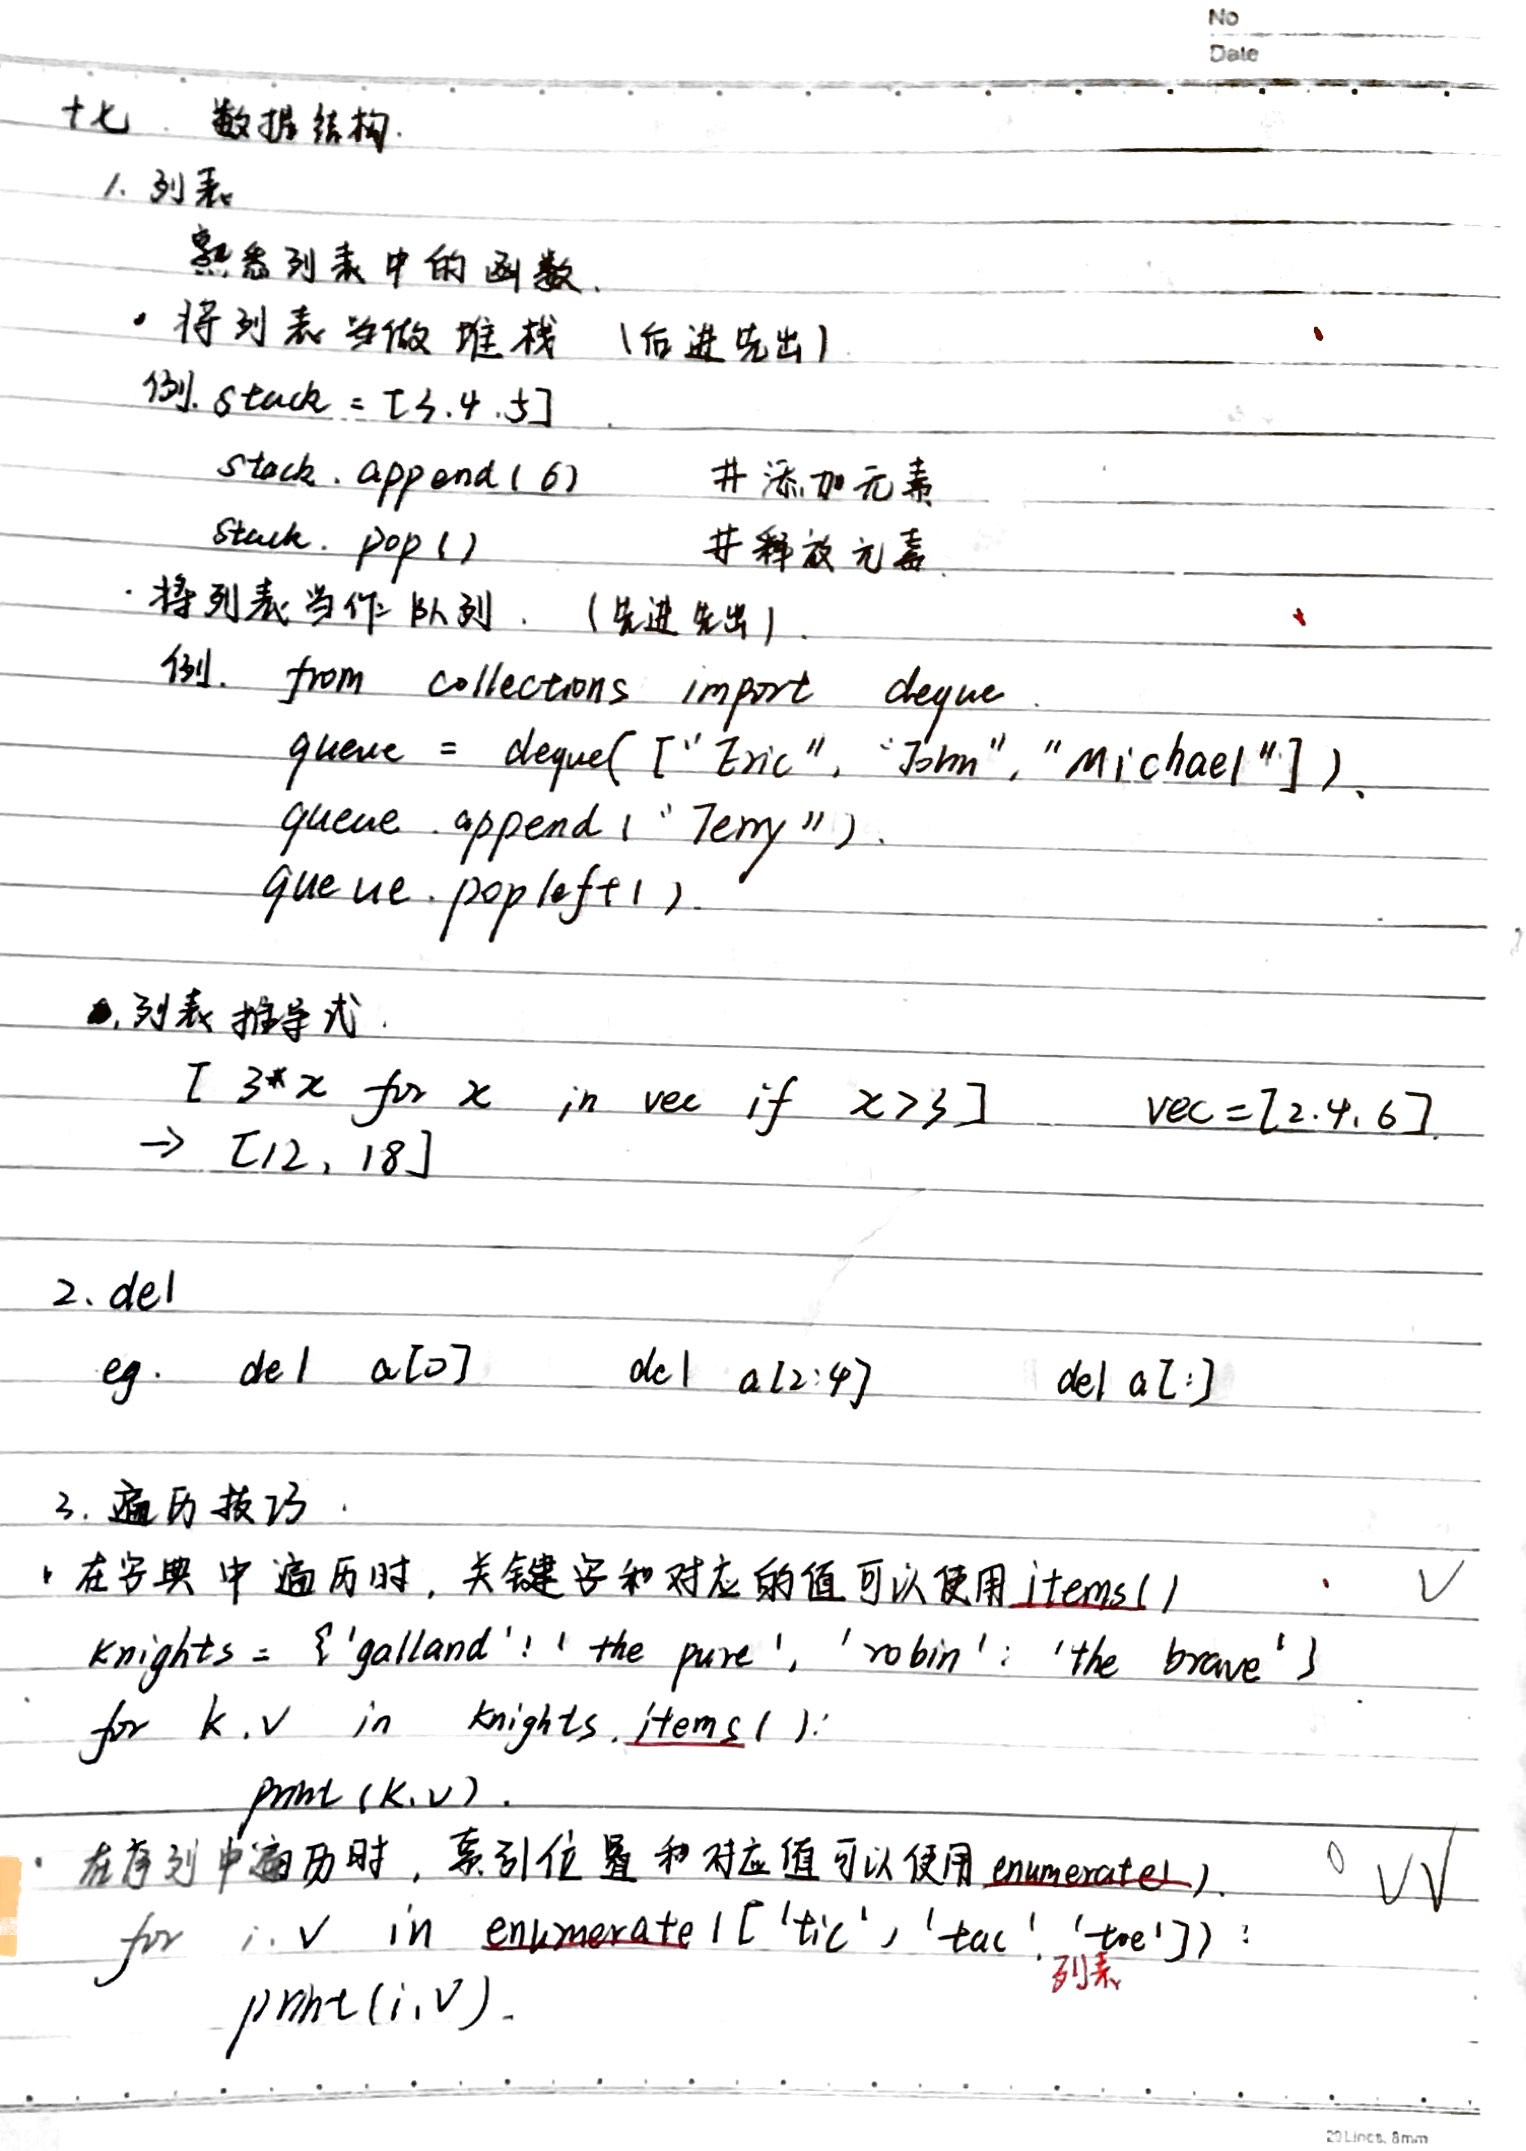 No
Date
十七. 数据结构.
1. 列表
熟悉列表中的函数.
· 将列表当做堆栈 (后进先出)
例. stack = [3.4.5]
stack.append(6) #添加元素
stack.pop() #释放元素.
· 将列表当作队列. (先进先出).
例. from collections import deque.
queue = deque(["Eric", "John", "Michael"]).
queue.append("Terry").
queue.popleft().
·列表推导式.
[3*x for x in vec if x>3] vec=[2.4.6].
→ [12, 18]
2. del
eg. del a[0] del a[2:4] del a[:]
3. 遍历技巧.
· 在字典中遍历时, 关键字和对应的值可以使用items()
knights = {'galland': 'the pure', 'robin': 'the brave'}
for k.v in knights.items():
print(k.v).
· 在序列中遍历时, 索引位置和对应值可以使用enumerate().
for i.v in enumerate(['tic', 'tac', 'toe']):
列表
print(i.v).
29 Lines. 8mm